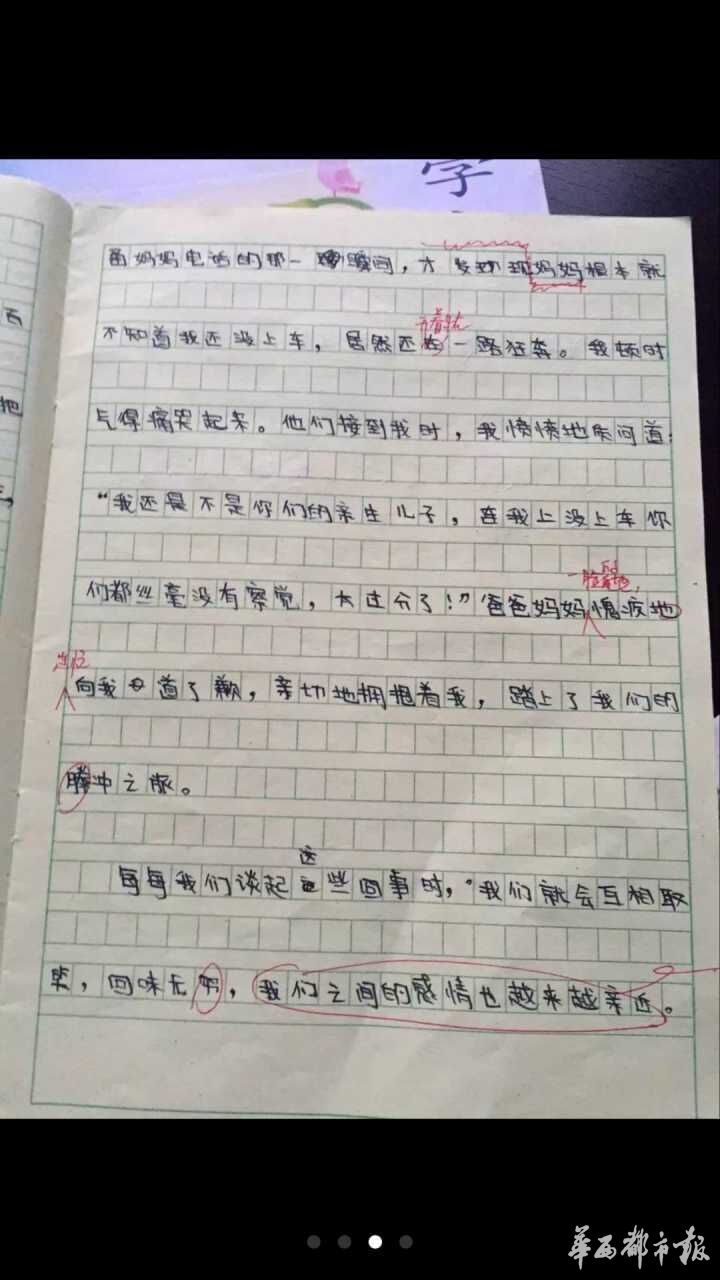 学
妈妈电话的那一瞬间，才发现妈妈根本就
不知道我还没上车，居然还在一路狂奔。我顿时
气得痛哭起来。他们接到我时，我愤愤地质问道：
“我还是不是你们的亲生儿子，连我上没上车你
们都丝毫没有察觉，太过分了！”爸爸妈妈愧疚地
连忙
向我道了歉，亲切地拥抱着我，踏上了我们的
腾冲之旅。
这
每每我们谈起些回事时，“我们就会互相取
笑，回味无穷，我们之间的感情也越来越亲近。
云
把
华西都市报